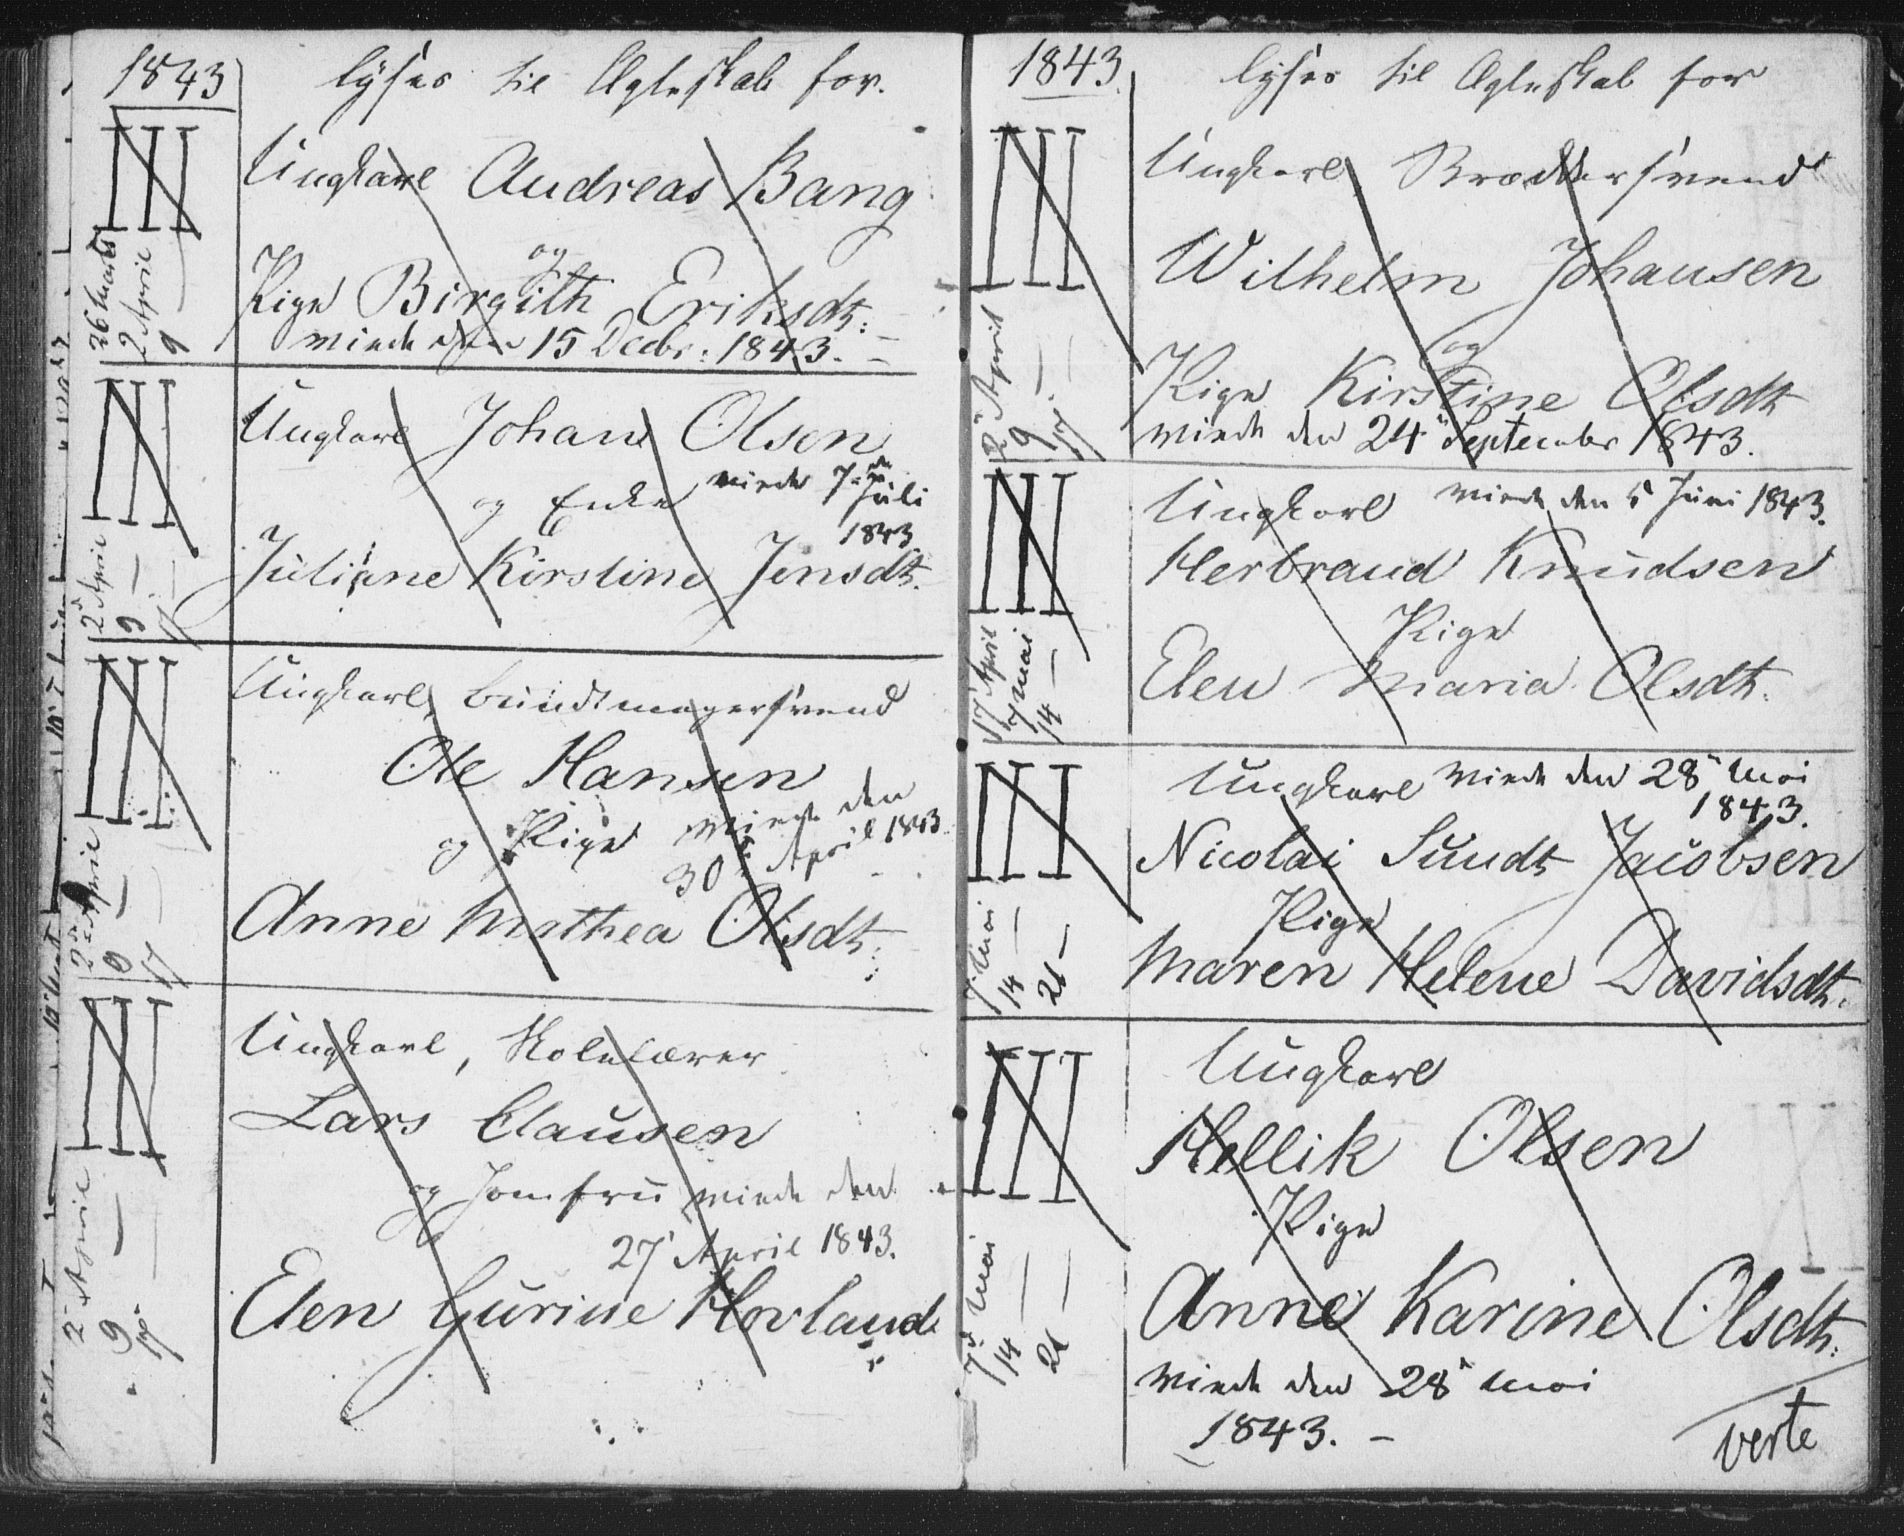 1843
lyses til Ægteskab for.
III
26 Marts
2 April
9 —
Ungkarl Andreas Bang
og
Pige Birgith Eriksdt:
viede den 15 Decbr: 1843. —
III
2 April
9 —
17 —
Ungkarl Johan Olsen
og Enke viede 7de Juli
1843
Juliane Kirstine Jensdt.
III
2 April
9 —
17 —
Ungkarl, Bundtmagersvend
Ole Hansen
og Pige viede den
30 April 1843
Anne Mathea Olsdt:
III
2 April
9 —
17 —
Ungkarl, Skolelærer
Lars Clausen
og Jomfru viede den
27 April 1843.
Elen Gurine Hovland.
1843.
lyses til Ægteskab for
III
2 April
9 —
17 —
Ungkarl Brødkersvend
Wilhelm Johansen
og
Pige Kirstine Olsdt
viede den 24 September 1843.
III
17 April
7 Mai
14 —
Ungkarl viede den 5 Juni 1843.
Herbrand Knudsen
Pige
Elen Maria Olsdt.
III
7 Mai
14 —
21 —
Ungkarl viede den 28 Mai
1843.
Nicolai Sundt Jacobsen
Pige
Maren Helene Davidsdt.
III
7 Mai
14 —
21 —
Ungkarl
Hellik Olsen
Pige
Anne Karine Olsdt.
viede den 28 Mai
1843. —
verte